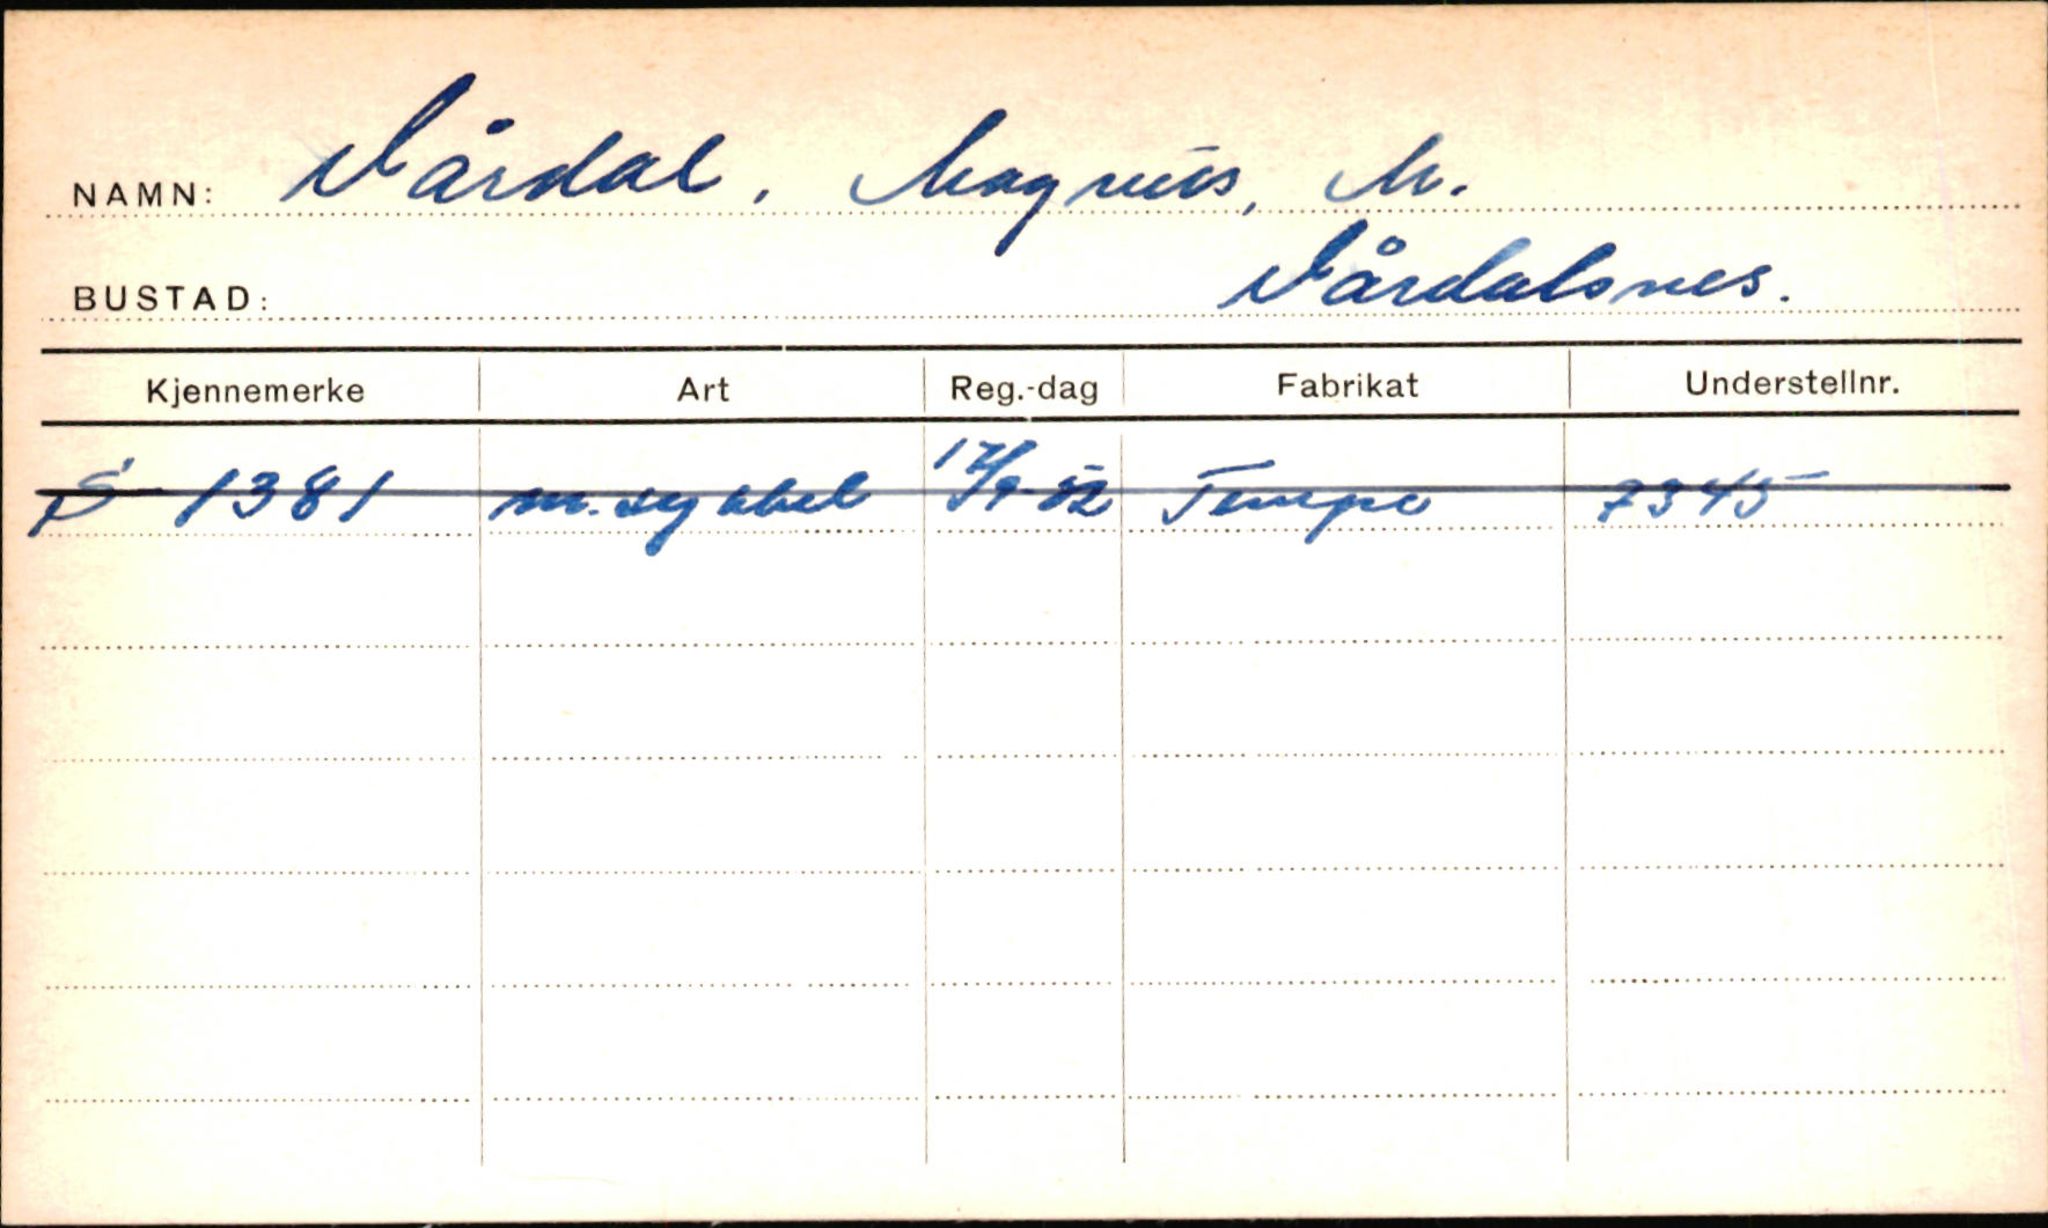 NAMN: Vårdal, Magnus, M.
BUSTAD: Vårdalsnes.
Kjennemerke Art Reg.-dag Fabrikat Understellnr.
S 1381 m.sykkel 17/9-52 Tempo 7345